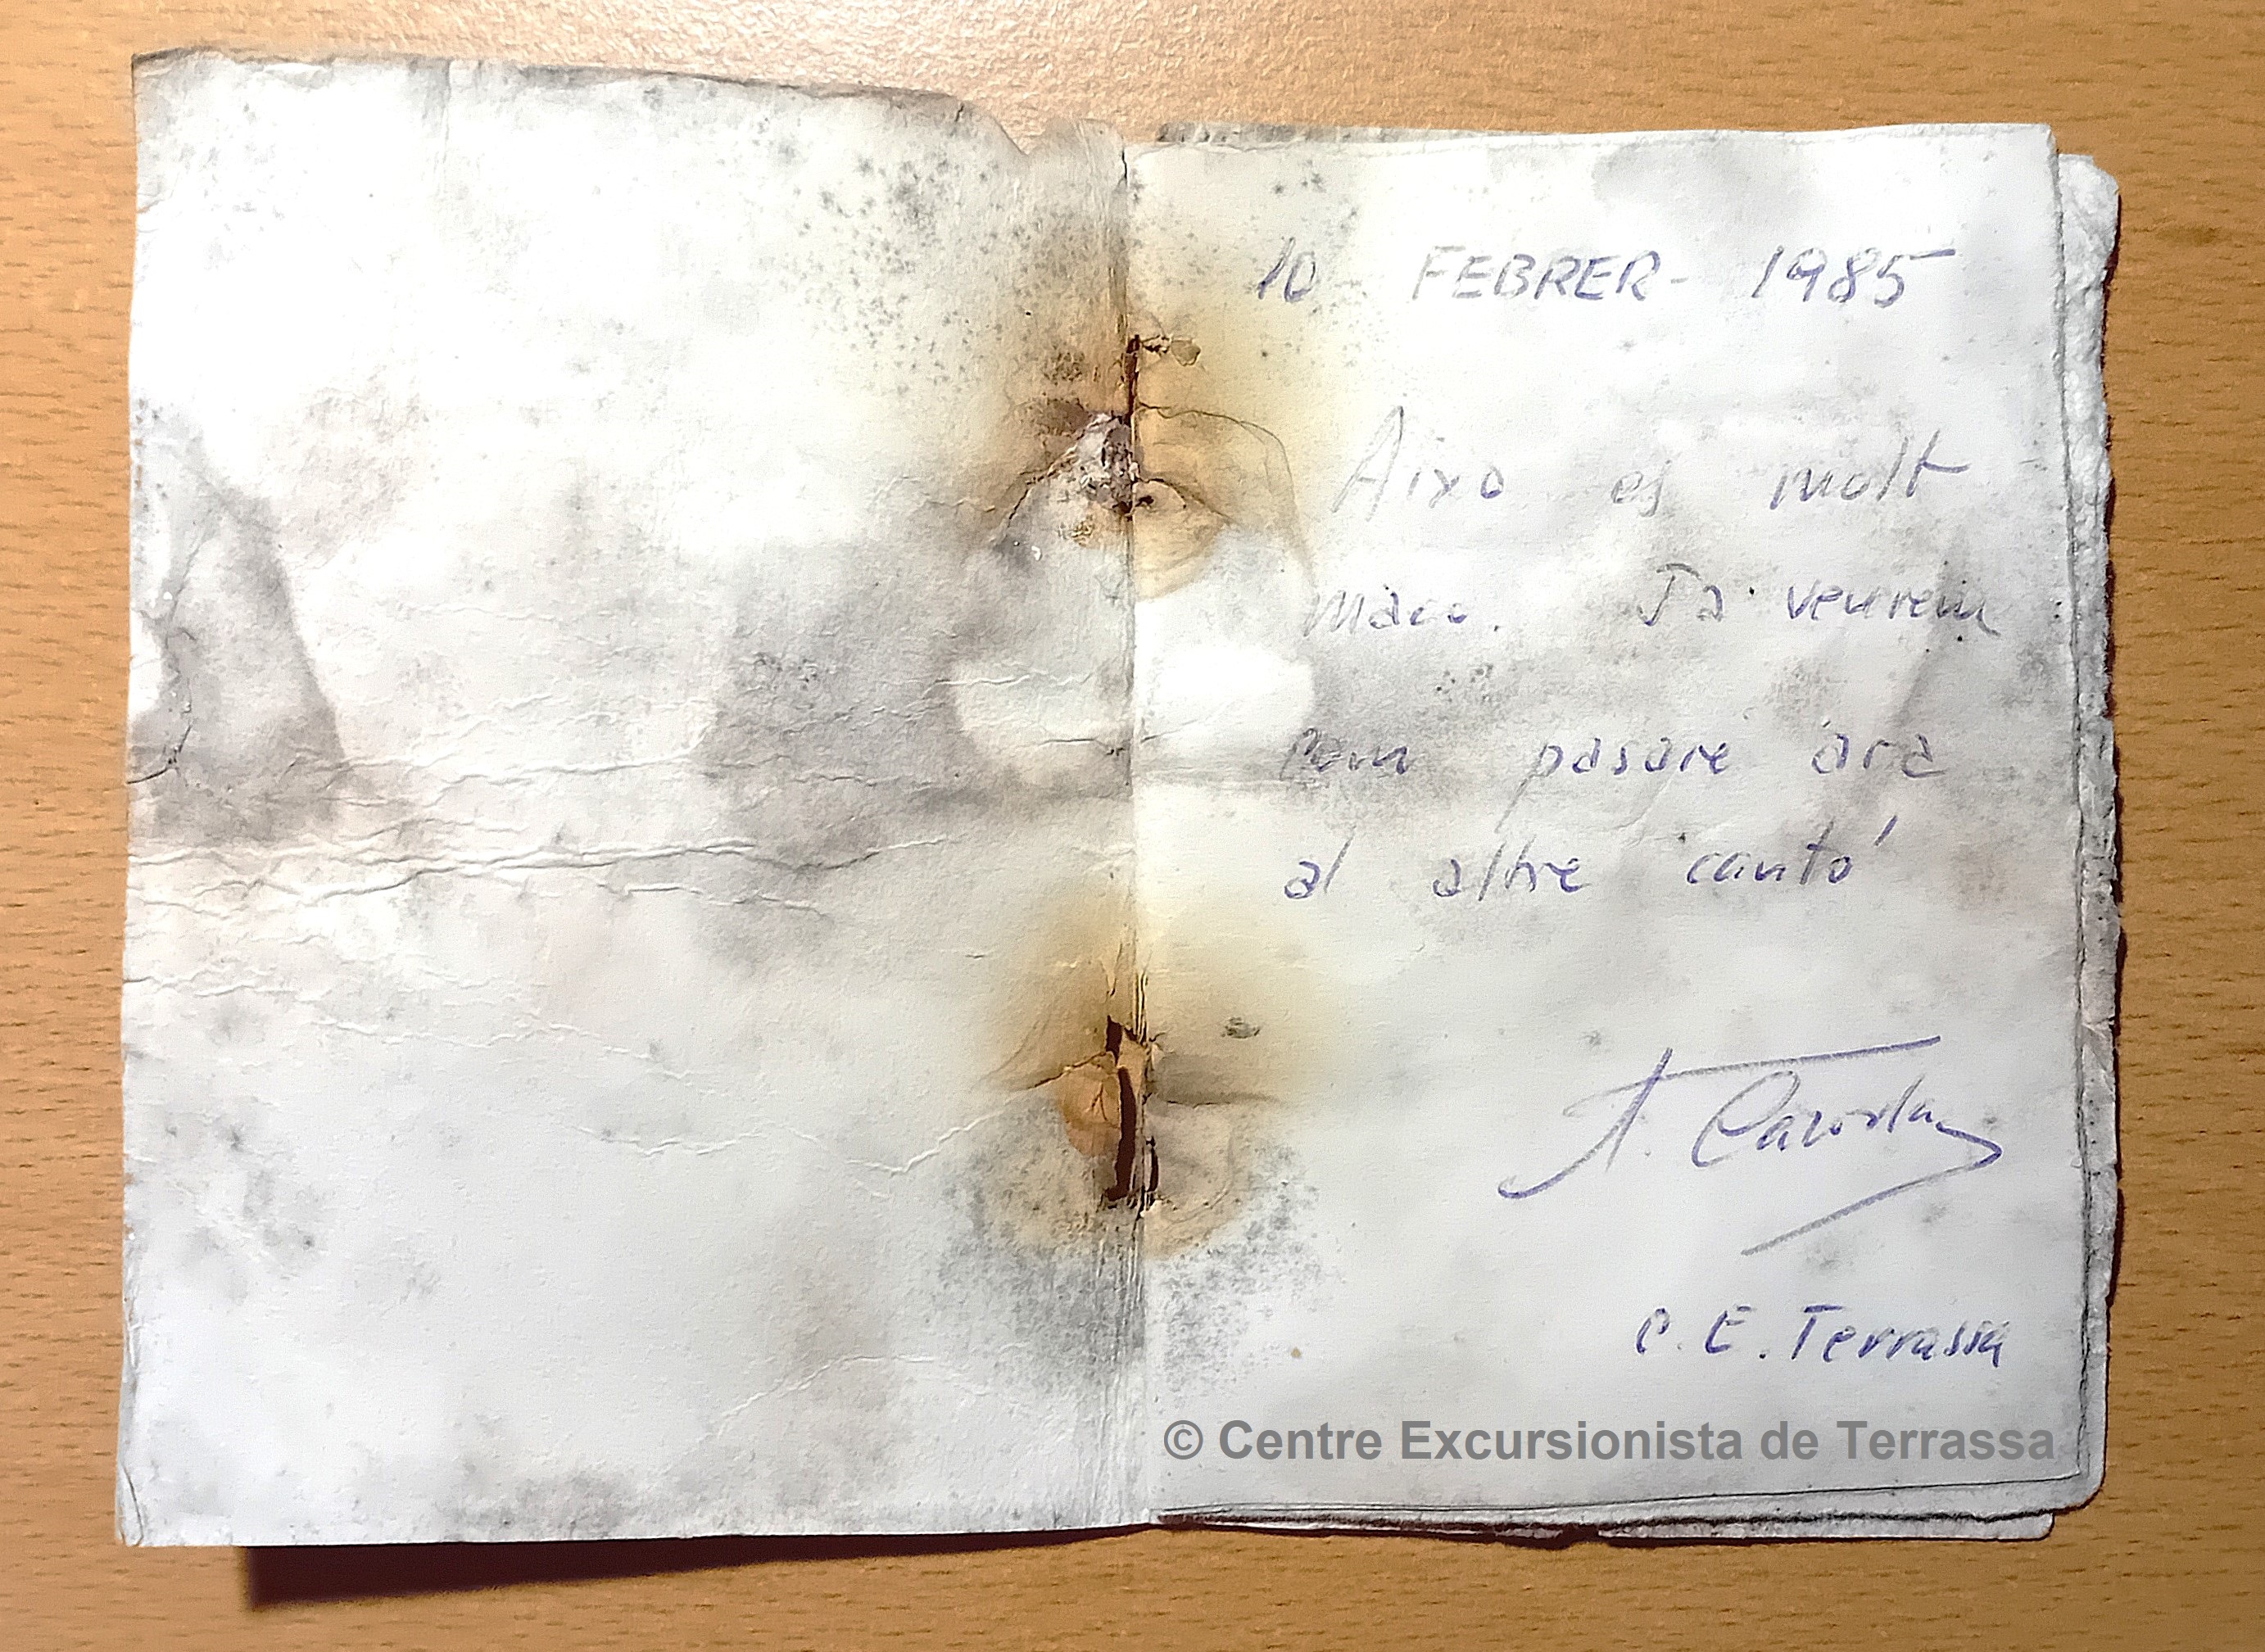 10 FEBRER - 1985
Aixo es molt
maco. Ja veurem
Com pasare ara
al altre cantó
A.
C. E. Terrassa
© Centre Excursionista de Terrassa